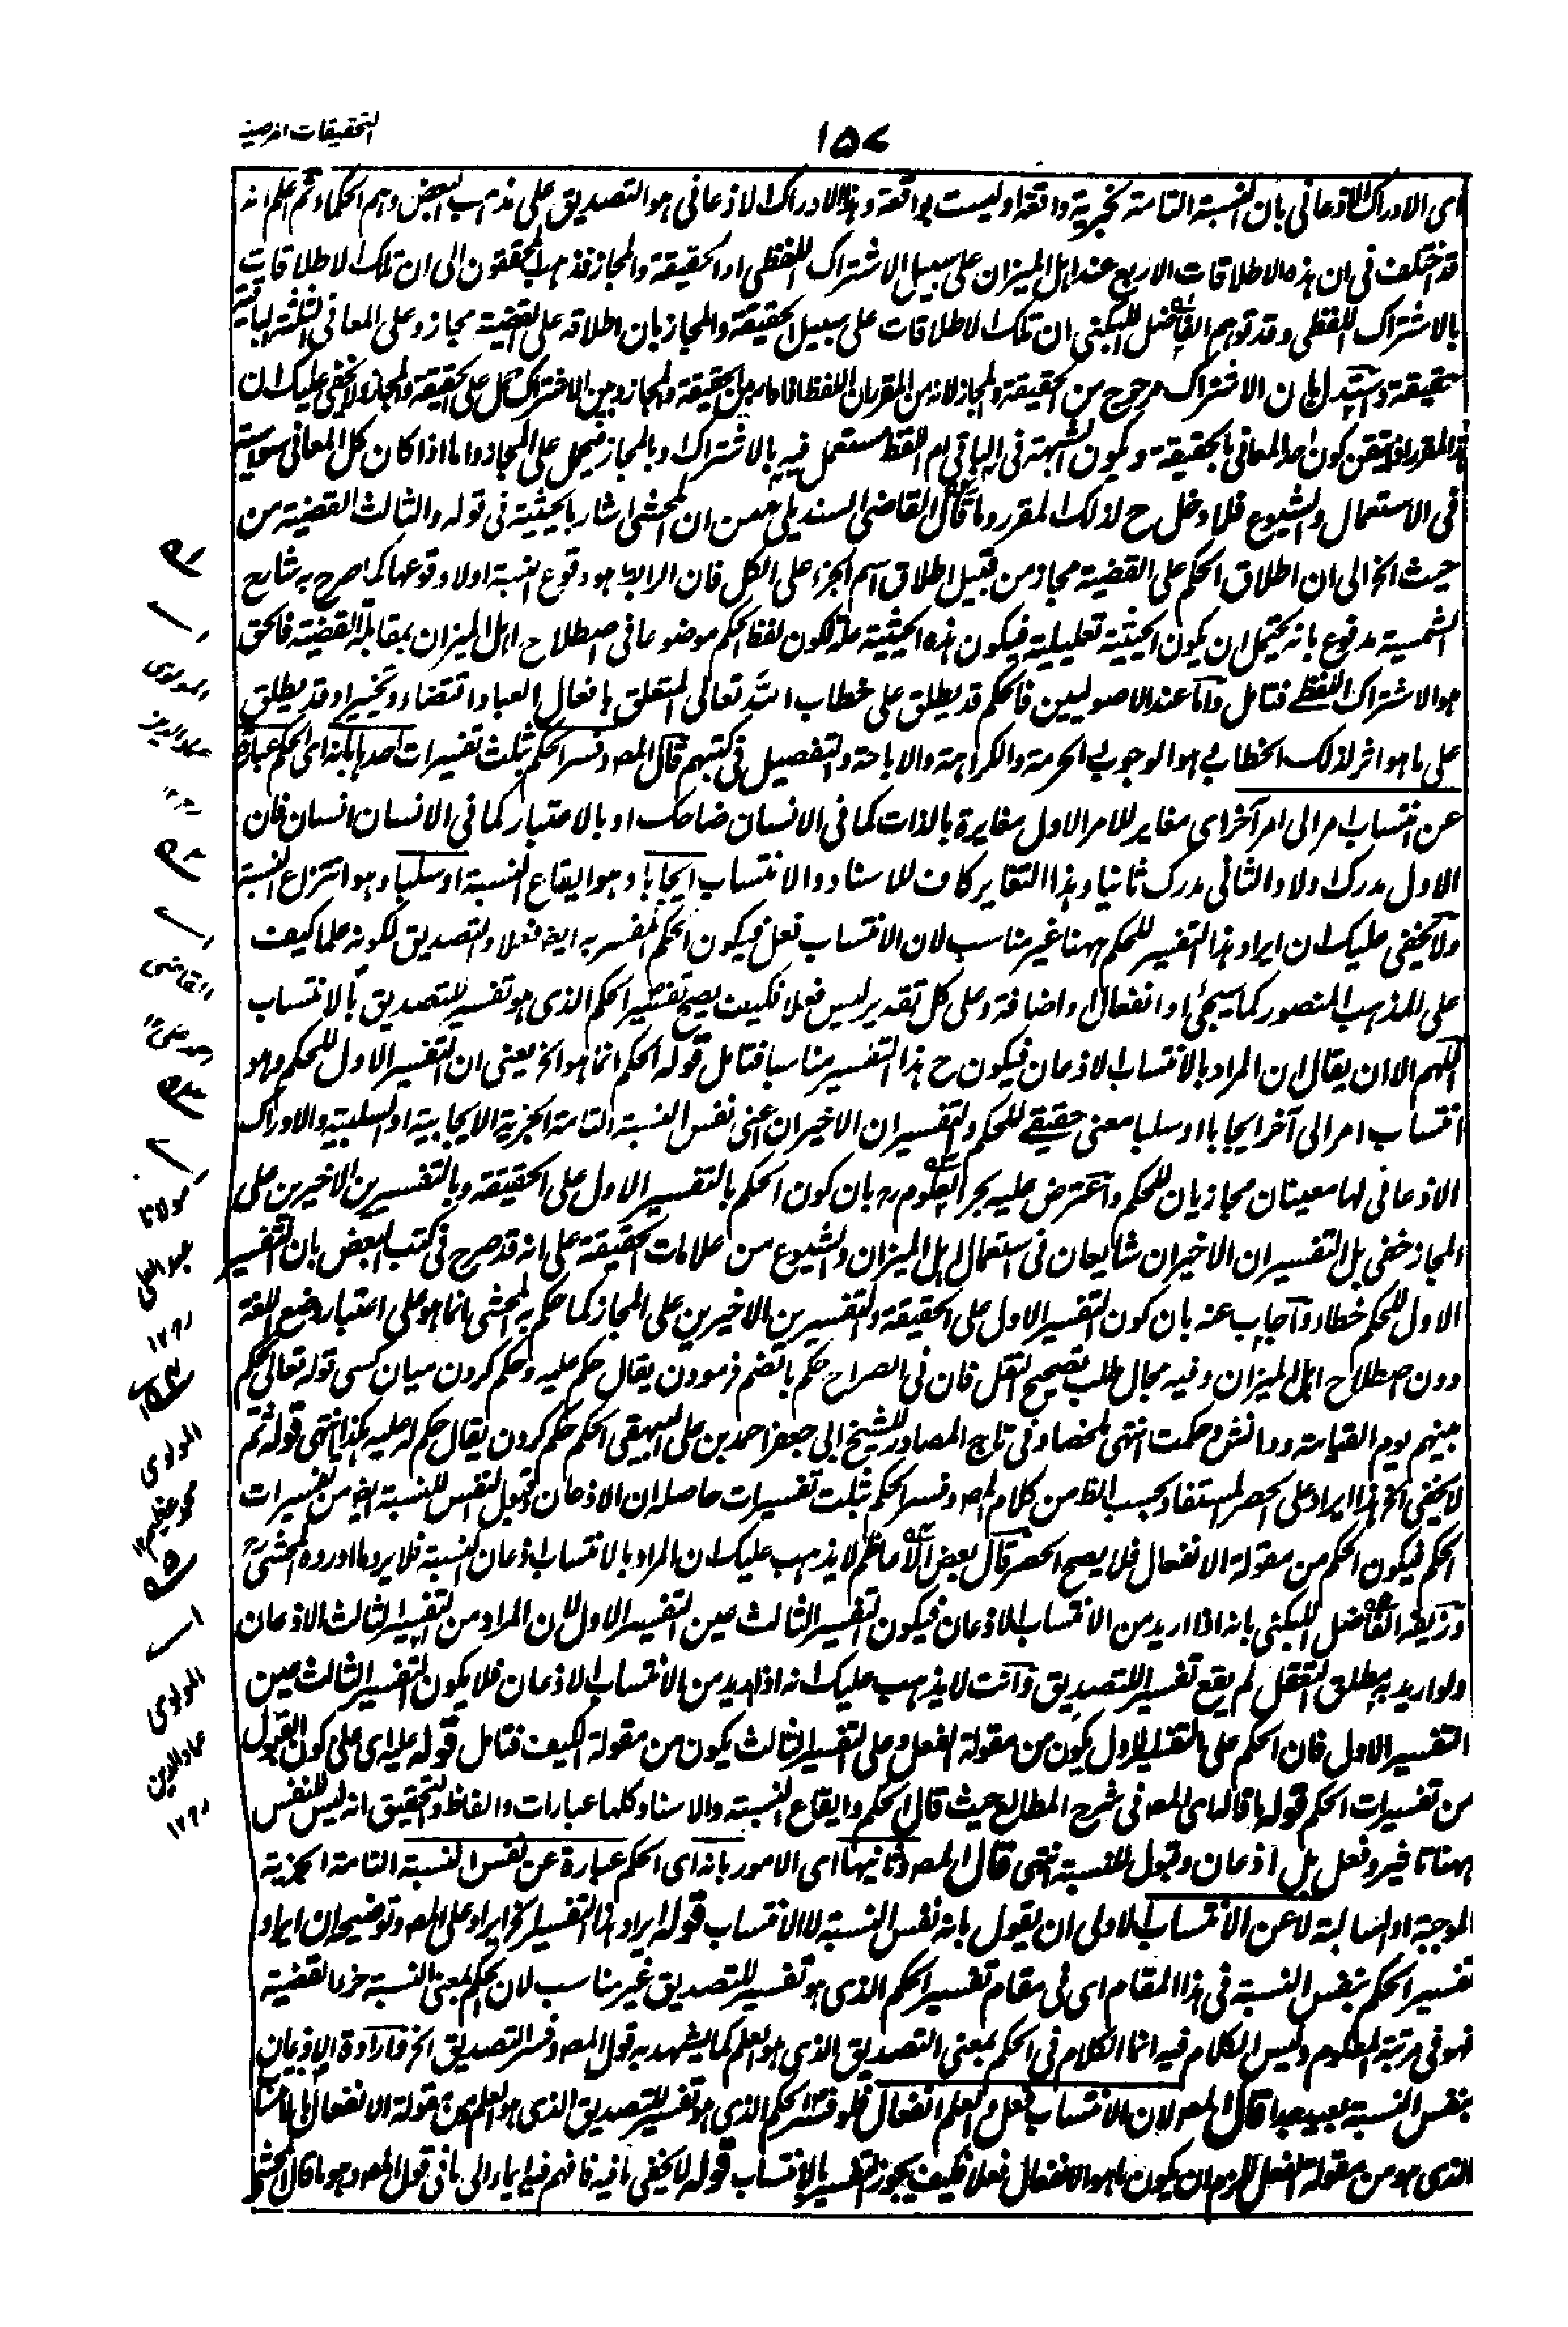 التحقيقات المرضية
١٥٧
اى الادراك الاذعانى بان النسبة التامة الخبرية واقعة او ليست بواقعة وهذا الادراك الاذعانى هو التصديق على مذهب البعض وهم الحكماء ثم اعلم انه
قد اختلف فى ان هذه الاطلاقات الاربع عند اهل الميزان على سبيل الاشتراك اللفظى او الحقيقة والمجاز فذهب المحققون الى ان تلك الاطلاقات
بالاشتراك اللفظى وقد توهم الفاضل اللبكنى ان تلك الاطلاقات على سبيل الحقيقة والمجاز بان اطلاقه على القضية مجاز وعلى المعانى الثلثة الباقية
حقيقة ويستدل بان الاشتراك مرجوح من الحقيقة والمجاز لانه من المقرر ان اللفظ اذا دار بين الحقيقة والمجاز وبين الاشتراك حمل على الحقيقة والمجاز ولا يخفى عليك ان
هذا المقرر اذا تيقن كون احد المعانى بالحقيقة ويكون الشبهة فى الباقى ام اللفظ مستعمل فيه بالاشتراك او بالمجاز فيحمل على المجاز واما اذا كان كل المعانى سواسية
فى الاستعمال والشيوع فلا دخل ح لذلك المقرر وما قال القاضى السنديلى من ان المحشى اشار بالحيثية فى قوله والثالث القضية من
حيث الخ الى ان اطلاق الحكم على القضية مجاز من قبيل اطلاق اسم الجزء على الكل فان الرابط هو وقوع النسبة او لا وقوعها كما صرح به شارح
الشمسية مدفوع بانه يحتمل ان يكون الحيثية تعليلية فيكون هذه الحيثية علة لكون لفظ الحكم موضوعا فى اصطلاح اهل الميزان بمقابلة القضية فالحق
هو الاشتراك اللفظى فتامل واما عند الاصوليين فالحكم قد يطلق على خطاب الله تعالى المتعلق بافعال العباد اقتضاء وتخييرا وقد يطلق
على ما هو اثر لذلك الخطاب هو الوجوب والحرمة والكراهة والاباحة والتفصيل فى كتبهم قال المصـ وفسر الحكم بثلث تفسيرات احدها بانه اى الحكم عبارة
عن انتساب امر الى امر آخر اى مغاير للامر الاول مغايرة بالذات كما فى الانسان ضاحك او بالاعتبار كما فى الانسان انسان فان
الاول مدرك اولا والثانى مدرك ثانيا وهذا التغاير كاف للاسناد والانتساب ايجابا وهو ايقاع النسبة او سلبا وهو انتزاع النسبة
ولا يخفى عليك ان ايراد هذا التفسير للحكم ههنا غير مناسب لان الانتساب فعل فيكون الحكم المفسر به ايضا فعلا والتصديق لكونه علما كيف
على المذهب المنصور كما سيجئ او انفعال او اضافة وعلى كل تقدير ليس فعلا فكيف يصح تفسير الحكم الذى هو تفسير للتصديق بالانتساب
اللهم الا ان يقال ان المراد بالانتساب الاذعان فيكون ح هذا التفسير مناسبا فتامل قوله الحكم انما هو الخ يعنى ان التفسير الاول للحكم وهو
انتساب امر الى آخر ايجابا او سلبا معنى حقيقى للحكم والتفسيران الاخيران اعنى نفس النسبة التامة الخبرية الايجابية او السلبية والادراك
الاذعانى لها معنيان مجازيان للحكم واعترض عليه بحر العلوم رہ بان كون الحكم بالتفسير الاول على الحقيقة وبالتفسيرين الاخيرين على
المجاز خفى بل التفسيران الاخيران شايعان فى استعمال اهل الميزان والشيوع من علامات الحقيقة على انه قد صرح فى كتب البعض بان التفسير
الاول للحكم خطاء واجاب عنه بان كون التفسير الاول على الحقيقة والتفسيرين الاخيرين على المجاز كما حكم به المحشى انما هو على اعتبار وضع اللغة
دون اصطلاح اهل الميزان وفيه مجال طلب تصحيح النقل فان فى الصراح حكم بالضم فرمودن يقال حكم عليه وحكم كردن ميان كسى قوله تعالى يحكم
بينهم يوم القيامة ودانش وحكمت انتهى ملخصا وفى تاج المصادر للشيخ ابى جعفر احمد بن على البيهقى الحكم حكم كردن يقال حكم له عليه بكذا انتهى قوله ثم
لا يخفى الخ هذا ايراد على الحصر المستفاد بحسب الظ من كلام المصـ وفسر الحكم بثلث تفسيرات حاصله ان الاذعان وقبول النفس للنسبة ايضا من تفسيرات
الحكم فيكون الحكم من مقولة الانفعال فلا يصح الحصر قال بعض الاعاظم لا يذهب عليك ان المراد بالانتساب اذعان النسبة فلا يرد ما اورده المحشى رہ
وزيفه الفاضل اللبكنى بانه اذا اريد من الانتساب الاذعان فيكون التفسير الثالث عين التفسير الاول لان المراد من التفسير الثالث الاذعان
ولو اريد به مطلق التعقل لم يقع تفسيرا للتصديق وانت لا يذهب عليك انه اذا اريد من الانتساب الاذعان فلا يكون التفسير الثالث عين
التفسير الاول فان الحكم على التفسير الاول يكون من مقولة الفعل وعلى التفسير الثالث يكون من مقولة الكيف فتامل قوله عليه اى على كون القبول
من تفسيرات الحكم قوله ما قاله اى المصـ فى شرح المطالع حيث قال الحكم وايقاع النسبة والاسناد كلها عبارات والفاظ والتحقيق انه ليس للنفس
ههنا تاثير وفعل بل اذعان وقبول للنسبة انتهى قال المصـ وثانيها اى الامور بانه اى الحكم عبارة عن نفس النسبة التامة الخبرية
الموجبة او السالبة لا عن الانتساب الاولى ان يقول بانه نفس النسبة لا الانتساب قوله ايراد هذا التفسير الخ ايراد على المصـ وتوضيحه ان ايراد
تفسير الحكم بنفس النسبة فى هذا المقام اى فى مقام تفسير الحكم الذى هو تفسير للتصديق غير مناسب لان الحكم بمعنى النسبة جزء القضية
فهو فى مرتبة المعلوم وليس الكلام فيه انما الكلام فى الحكم بمعنى التصديق الذى هو العلم كما يشهد به قول المصـ وفسر التصديق الخ وارادة الاذعان
بنفس النسبة بعيد جدا قال المصـ لان الانتساب فعل والعلم انفعال فلو فسر الحكم الذى هو تفسير للتصديق الذى هو العلم من مقولة الانفعال بالانتساب
الذى هو من مقولة الفعل للزم ان يكون ما هو الانفعال فعلا فكيف يجوز التفسير بالانتساب قوله لا يخفى ما فيه فافهم فيه ايماء الى ما فى قول المصـ وهو ما قال المحشى
المولوى
عماد الدين
القاضى
احمد على ١٢
مولانا
عبد العلى
١٢ منہ
المولوى
محمد عظيم ١٢
المولوى
عماد الدين
١٢ منہ